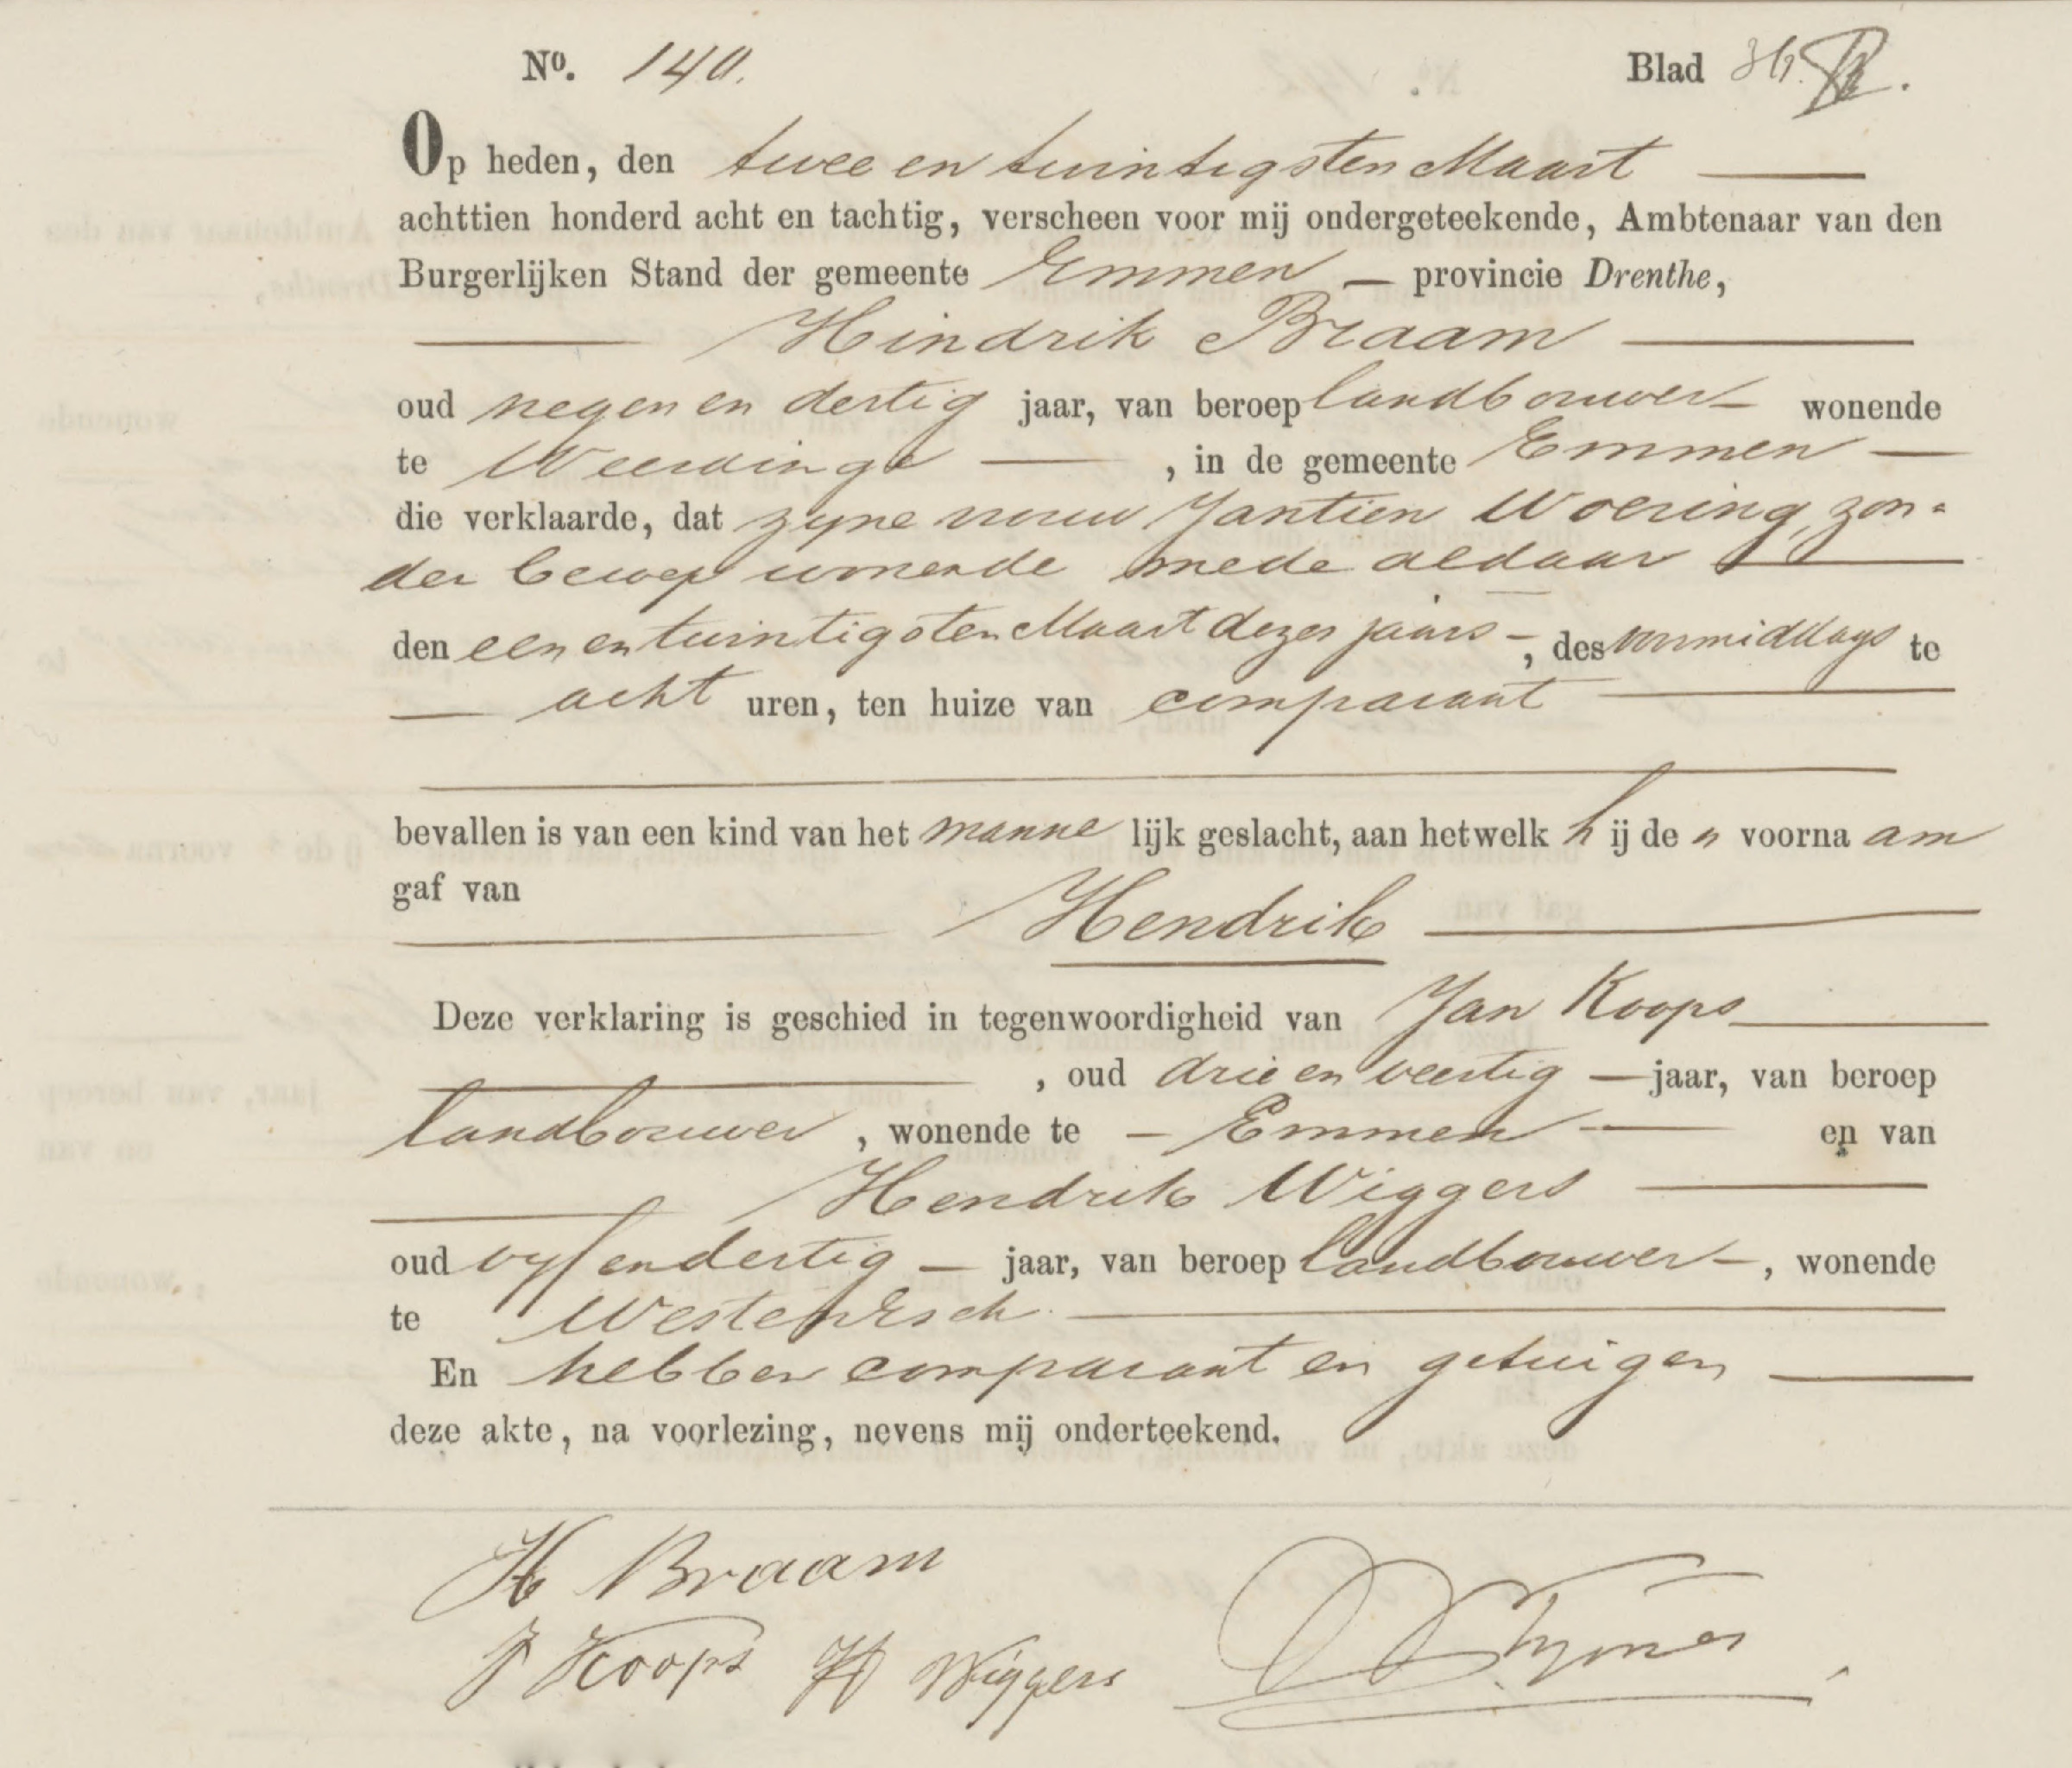 No. 140. Blad
Op heden, den twee en twintigsten Maart
achttien honderd acht en tachtig, verscheen voor mij ondergeteekende, Ambtenaar van den
Burgerlijken Stand der gemeente Emmen — provincie Drenthe,
Hindrik Braam
oud negen en dertig jaar, van beroep landbouwer wonende
te Weerdinge —, in de gemeente Emmen —
die verklaarde, dat zyne vrouw Jantien Woering, zon-
der beroep wonende mede aldaar
den een en twintigsten Maart dezes jaars —, des voormiddags te
— acht uren, ten huize van comparant
bevallen is van een kind van het manne lijk geslacht, aan hetwelk h ij de n voorna am
gaf van
Hendrik
Deze verklaring is geschied in tegenwoordigheid van Jan Koops
, oud drie en veertig — jaar, van beroep
landbouwer, wonende te — Emmen — en van
Hendrik Wiggers
oud vyf en dertig — jaar, van beroep landbouwer —, wonende
te Westenesch
En hebben comparant en getuigen
deze akte, na voorlezing, nevens mij onderteekend.
H Braam
J Koops H Wiggers